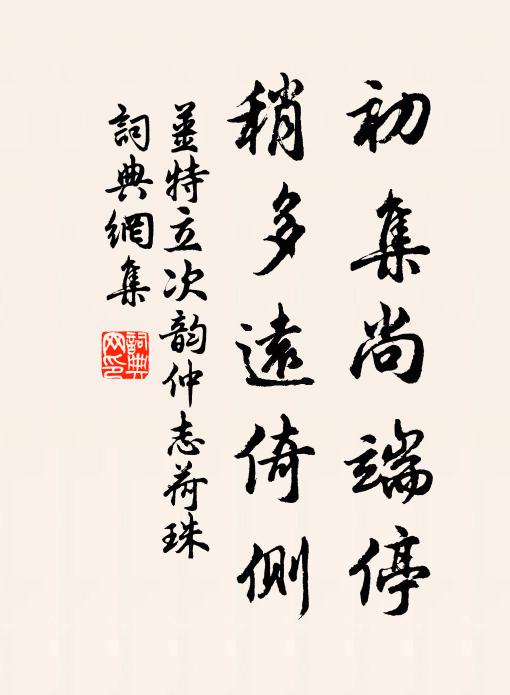 初集尚端停
稍多遠倚側
姜特立次韵仲志荷珠
詞典網集
詞典网印